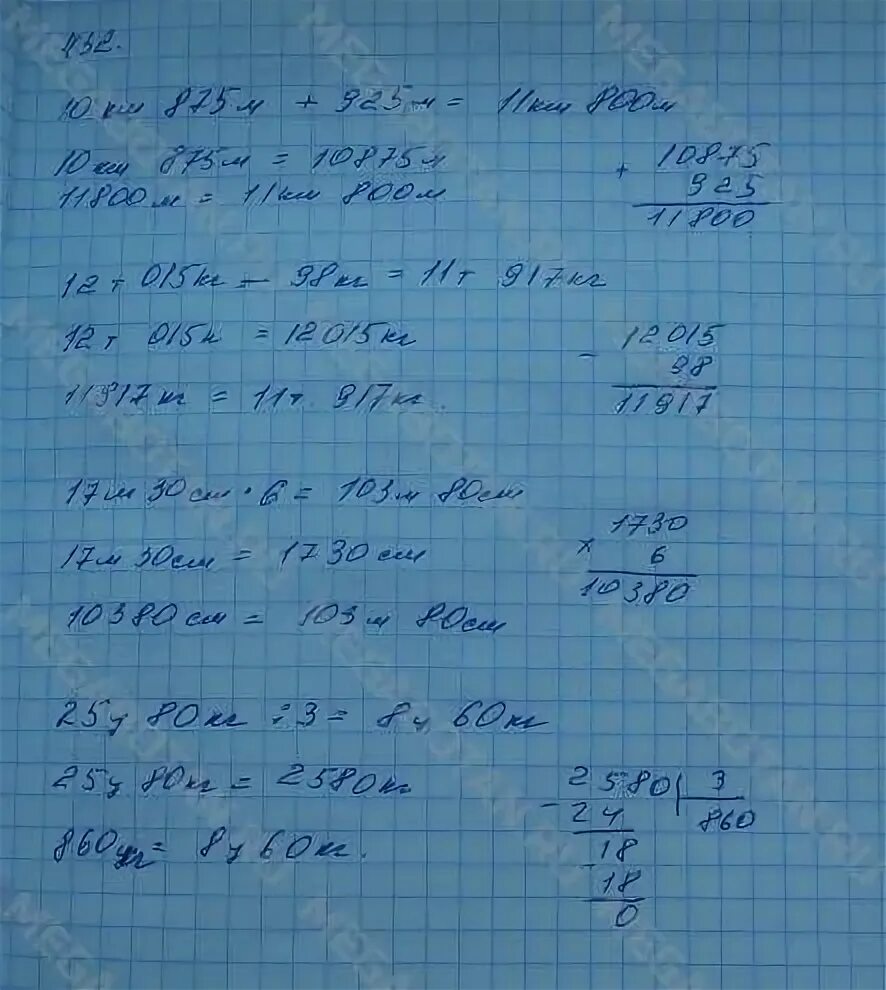 432.
10 км 875 м + 925 м = 11 км 800 м
10 км 875 м = 10875 м
11800 м = 11 км 800 м
+ 10875
925
11800
12 т 015 кг - 98 кг = 11 т 917 кг
12 т 015 к = 12015 кг
11917 кг = 11 т. 917 кг.
- 12015
98
11917
17 м 30 см · 6 = 103 м 80 см
17 м 30 см = 1730 см
10380 см = 103 м 80 см
× 1730
6
10380
25 ц 80 кг : 3 = 8 ц 60 кг
25 ц 80 кг = 2580 кг
860 кг = 8 ц 60 кг.
- 2580 3
24 860
18
18
0